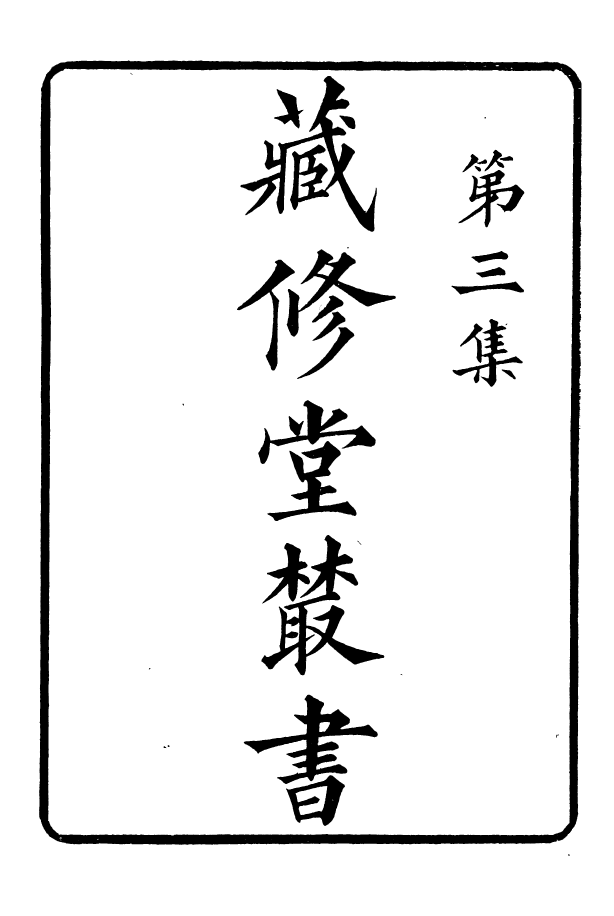 第三集
藏修堂叢書